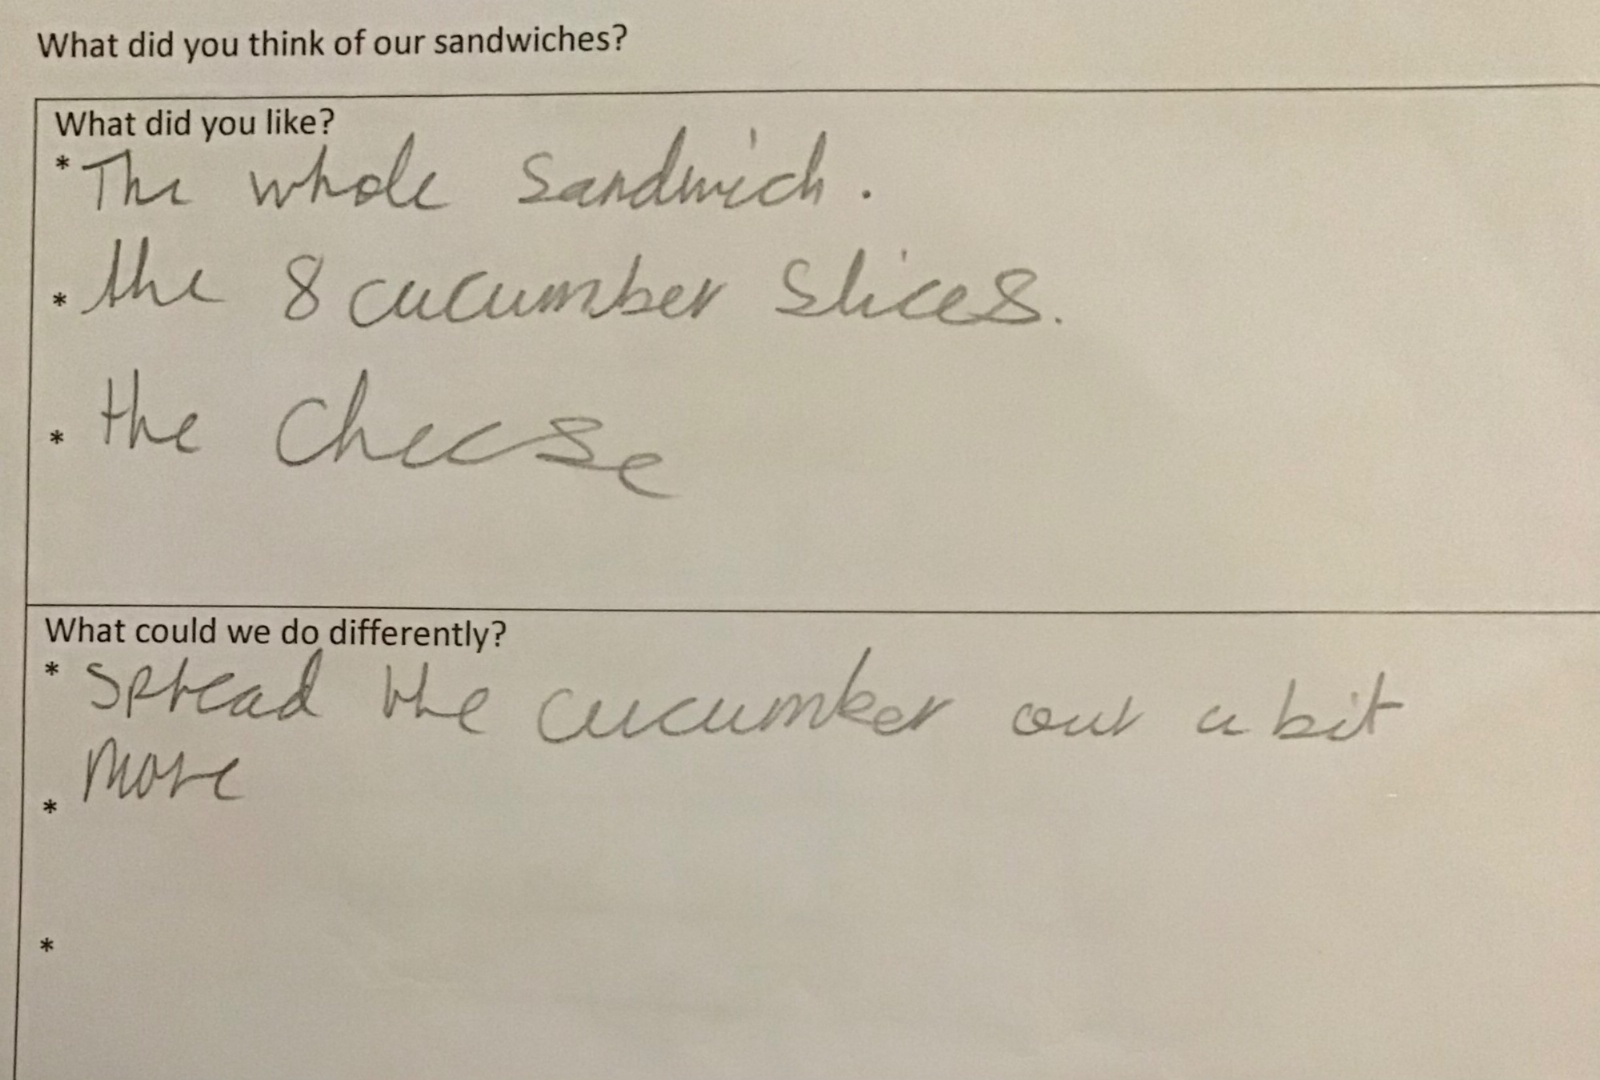 What did you think of our sandwiches?
What did you like?
* The whole sandwich.
* the 8 cucumber slices.
* the cheese
What could we do differently?
* spread the cucumber out a bit
more
*
*